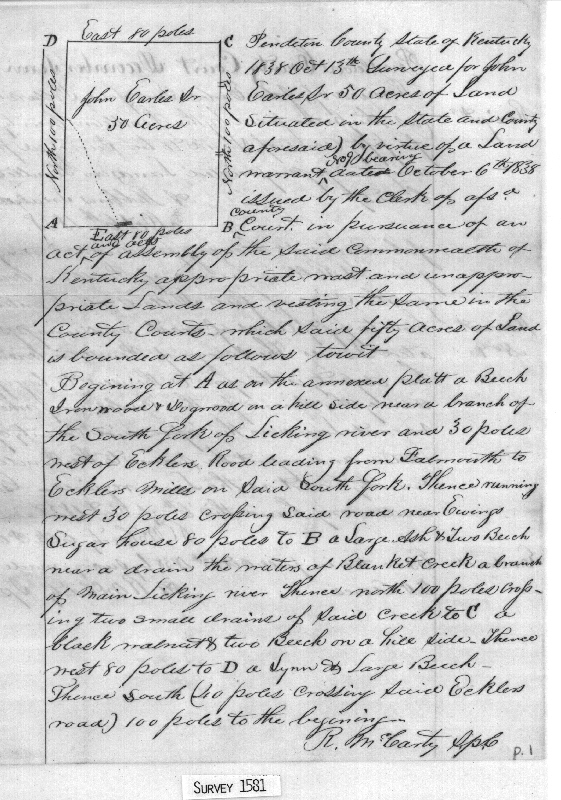 D East 80 poles C
John Earles Sr
50 Acres
North 100 poles
North 100 poles
A East 80 poles B
Pendleton County State of Kentucky
1838 Oct 13th Surveyed for John
Earles Sr 50 Acres of Land
Situated in the State and County
aforesaid) by virtue of a Land
warrant No 9 bearing date October 6th 1838
issued by the Clerk of afsd
County Court. in pursuance of an
act and acts of assembly of the said Commonwealth of
Kentucky appropriate wast and unappro-
priate Lands and vesting the same in the
County Courts which said fifty acres of Land
is bounded as follows towit
Begining at A as on the annexed platt a Beech
Ironwood & Dogwood on a hill side near a branch of
the South fork of Licking river and 30 poles
west of Ecklers Road leading from Falmouth to
Ecklers Mills on Said South fork. Thence running
west 30 poles crossing said road near Ewings
Sugar house 80 poles to B a Large Ash & Two Beech
near a drain the waters of Blanket Creek a branch
of Main Licking river Thence north 100 poles Cross-
ing two small drains of said Creek to C a
black walnut & two Beech on a hill side Thence
west 80 poles to D a Lynn & Large Beech
Thence South (40 poles Crossing said Ecklers
road) 100 poles to the begining
R. McCarty SPC
p. 1
SURVEY 1581